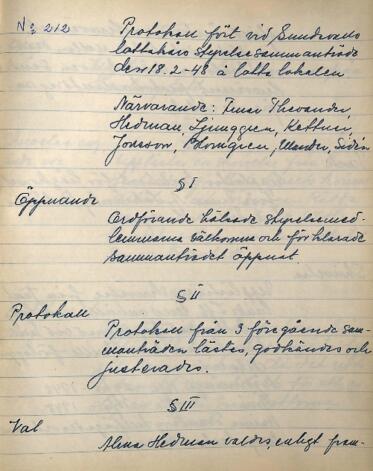 No 212
Protokoll fört vid Sundsvalls
lottakårs styrelsesammanträde
den 18.2-48 å lotta lokalen
Närvarande: Thevander,
Hedman, Ljunggren, Kettner,
Jonsson, Blomgren, Wander, Sidén
§ I
Öppnande
Ordförande hälsade styrelsemed-
lemmarna välkomna och förklarade
sammanträdet öppnat.
§ II
Protokoll
Protokoll från 3 föregående sam-
manträden lästes, godkändes och
justerades.
§ III
Val
Alma Hedman valdes, enligt fram-